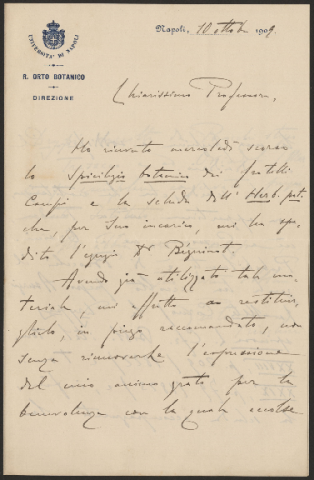 UNIVERSITÀ DI NAPOLI
R. ORTO BOTANICO
DIREZIONE
Napoli, 10 ottob. 1909
Chiarissimo Professore,
Ho ricevuto mercoledì scorso
lo spicilegio botanico dei fratelli
Campi e le schede dell'Herb. pat.
che, per Suo incarico, mi ha spe
dito l'egregio Dr Béguinot.
Avendo già utilizzato tale ma
teriale, mi affretto a restituir
glielo, in piego raccomandato, non
senza rinnovarle l'espressione
del mio animo grato per la
benevolenza con la quale accolse